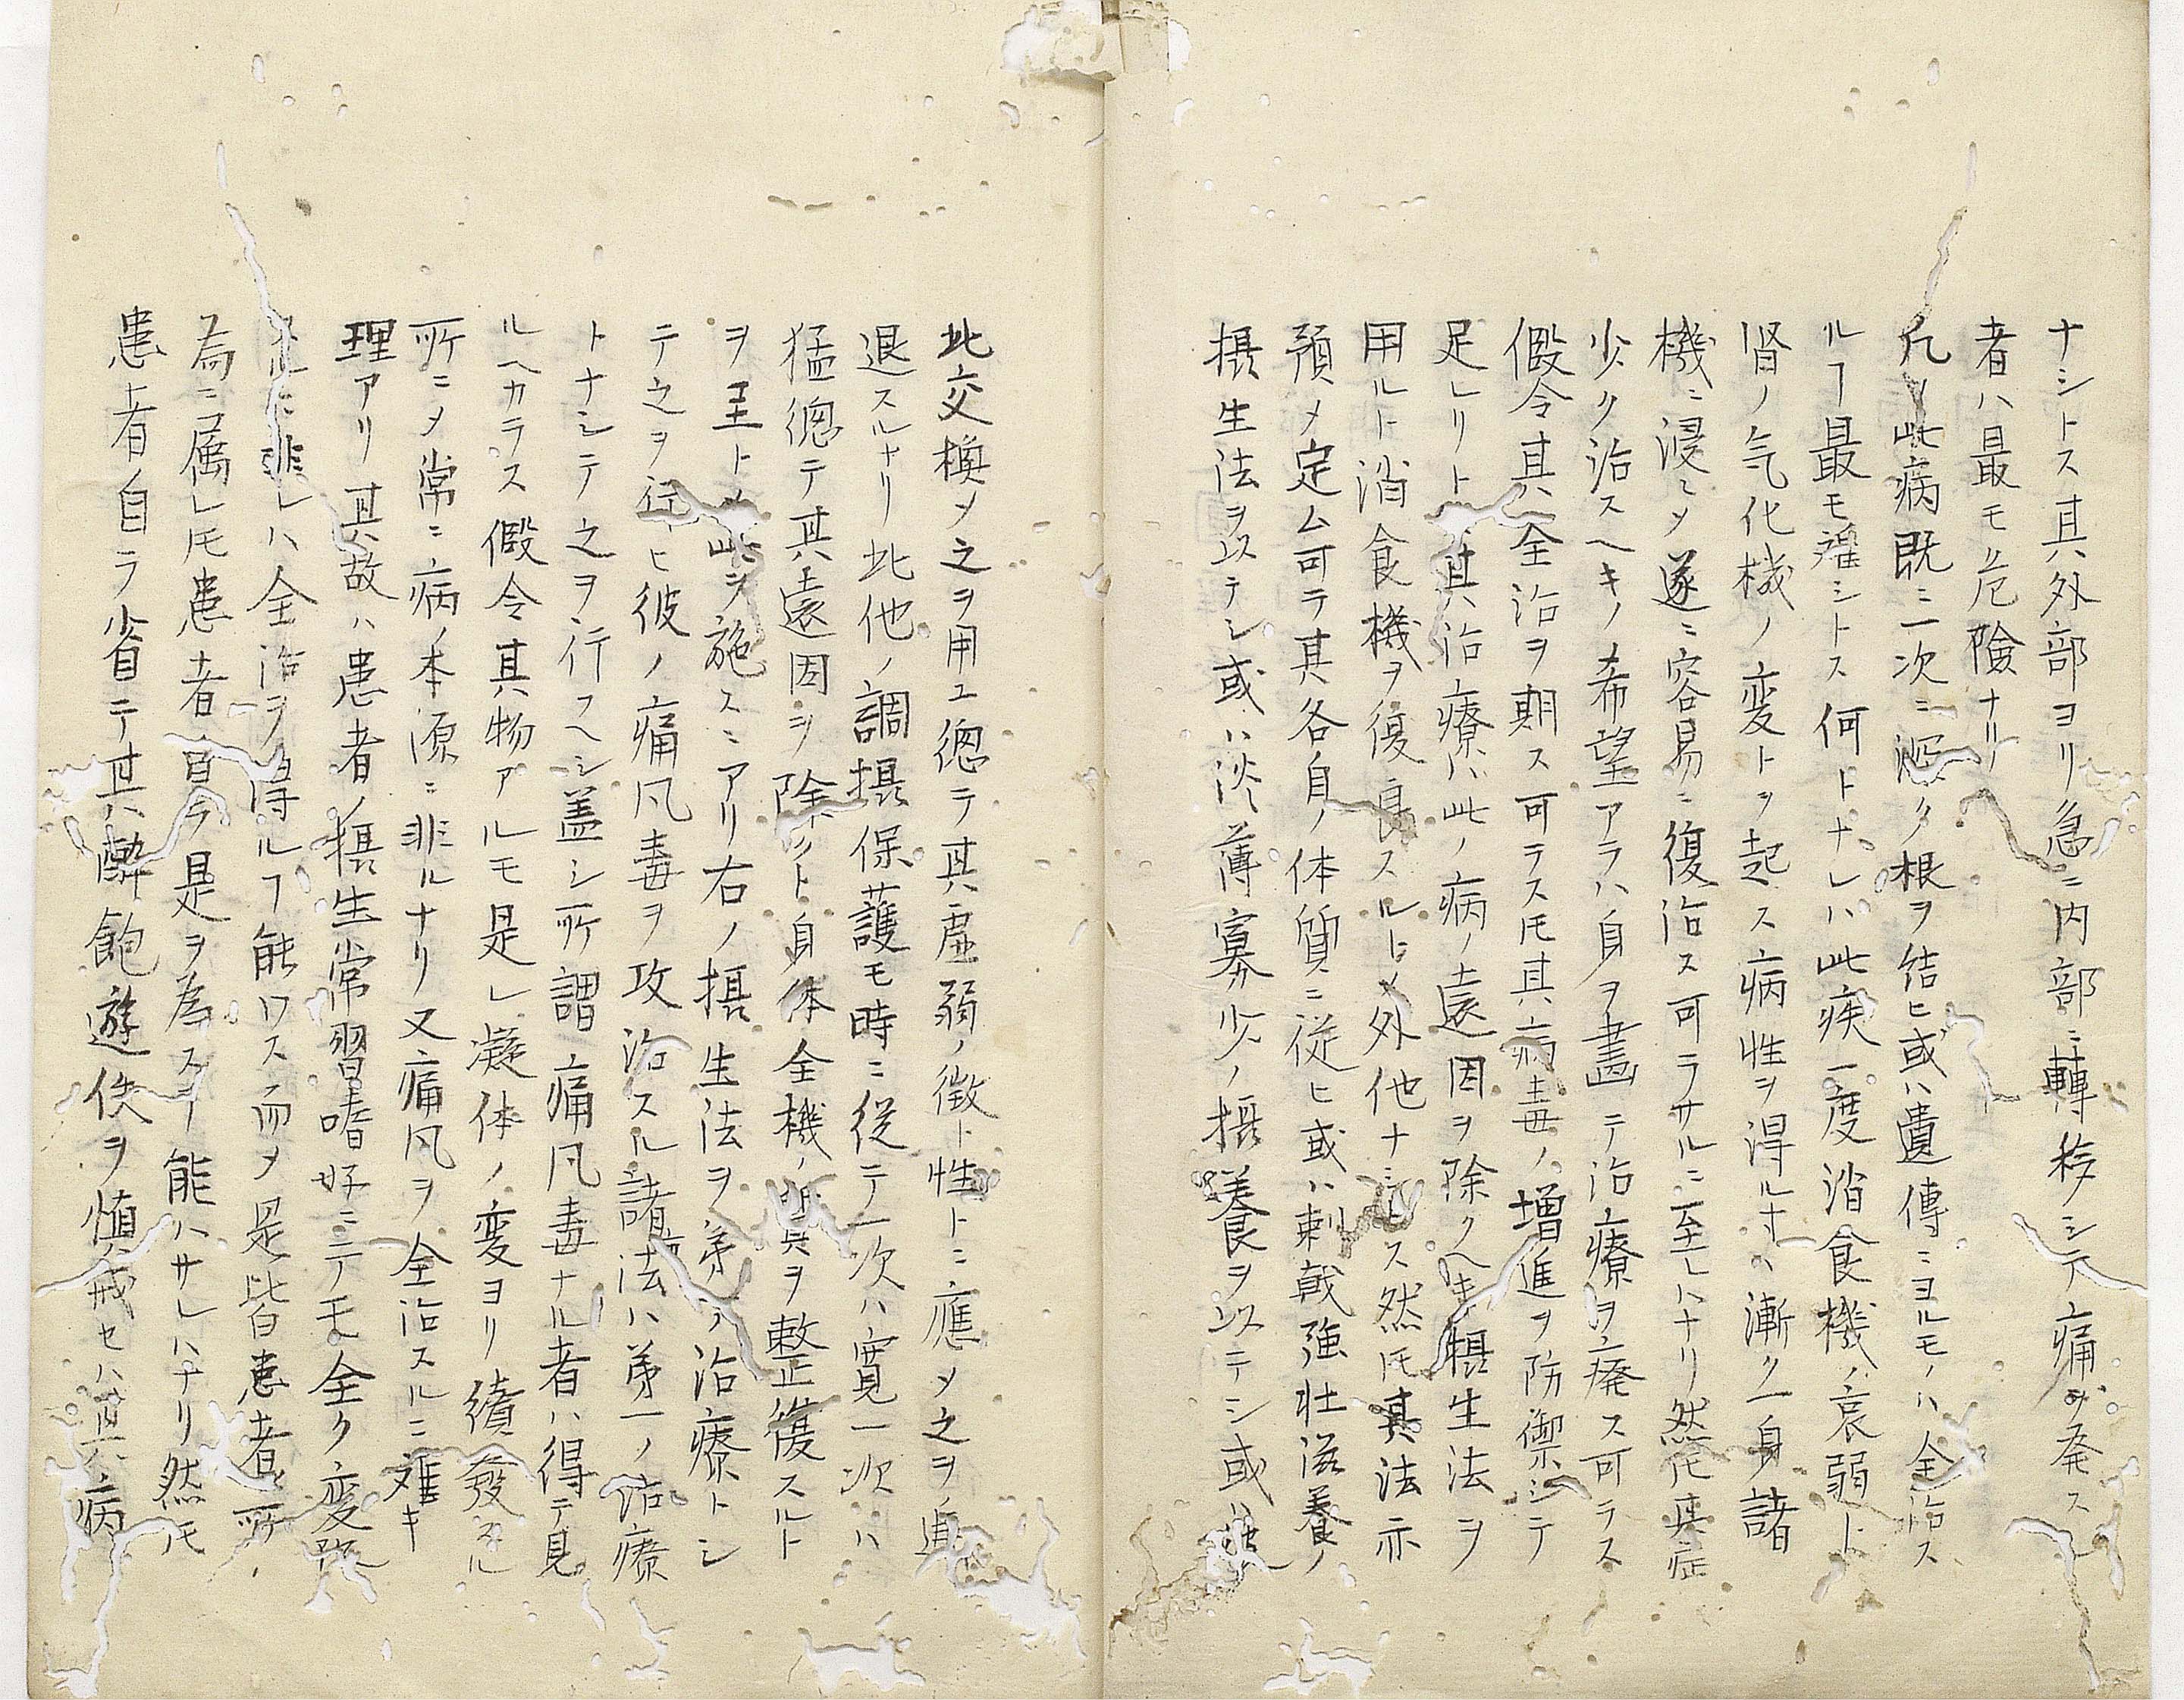 ナシトス其外部ヨリ急ニ内部ニ轉移シテ痛ヲ発ス
者ハ最モ危險ナリ
凡ソ此病既ニ一次ニ深ク根ヲ結ヒ或ハ遺傳ニヨルモノハ全治ス
ルヿ最モ難シトス何トナレハ此疾一度消食機ノ衰弱ト
腎ノ気化機ノ変トヲ起ス病性ヲ得ル寸ハ漸ク一身諸
機ニ浸ミメ遂ニ容易ニ復治ス可ラサルニ至レハナリ然𪜈其症
少ク治スヘキノ希望アラハ身ヲ畫テ治療ヲ廃ス可ラス
假令其全治ヲ期ス可ラス𪜈其病毒ノ増進ヲ防禦シテ
足レリト其治療ハ此ノ病ノ遠因ヲ除クヘキ摂生法ヲ
用ルト消食機ヲ復良スルトメ外他ナシトス然𪜈其法亦
預メ定ム可ラ其各自ノ体質ニ従ヒ或ハ刺戟強壮滋養ノ
摂生法ヲ以テシ或ハ淡薄寡少ノ摂養ヲ以テシ或ハ
此交換メ之ヲ用ユ總テ其虚弱ノ徴ト性トニ應メ之ヲ進
退スルナリ此他ノ調摂保護モ時ニ従テ一次ハ寛一次ハ
猛總テ其遠因ヲ除クト身体全機ノ異ヲ整復スルト
ヲ主トメ此ヲ施スニアリ右ノ摂生法ヲ第一ノ治療トシ
テ之ヲ行ヒ彼ノ痛風毒ヲ攻治スル諸法ハ第一ノ治療
トナシテ之ヲ行フヘシ蓋シ所謂痛風毒ナル者ハ得テ見
ルヘカラス假令其物アルモ是レ凝体ノ変ヨリ續發スル
所ニメ常ニ病ノ本源ニ非ルナリ又痛風ヲ全治スルニ難キ
理アリ其故ハ患者ノ摂生常習嗜好ニテモ全ク変
止ニ非レハ全治ヲ得ルヿ能ワス而メ是皆患者ノ所
為ニ属レ𪜈患者自今是ヲ為スヿ能ハサレハナリ然𪜈
患者自ラ省テ其酔飽遊佚ヲ慎戒セハ其病